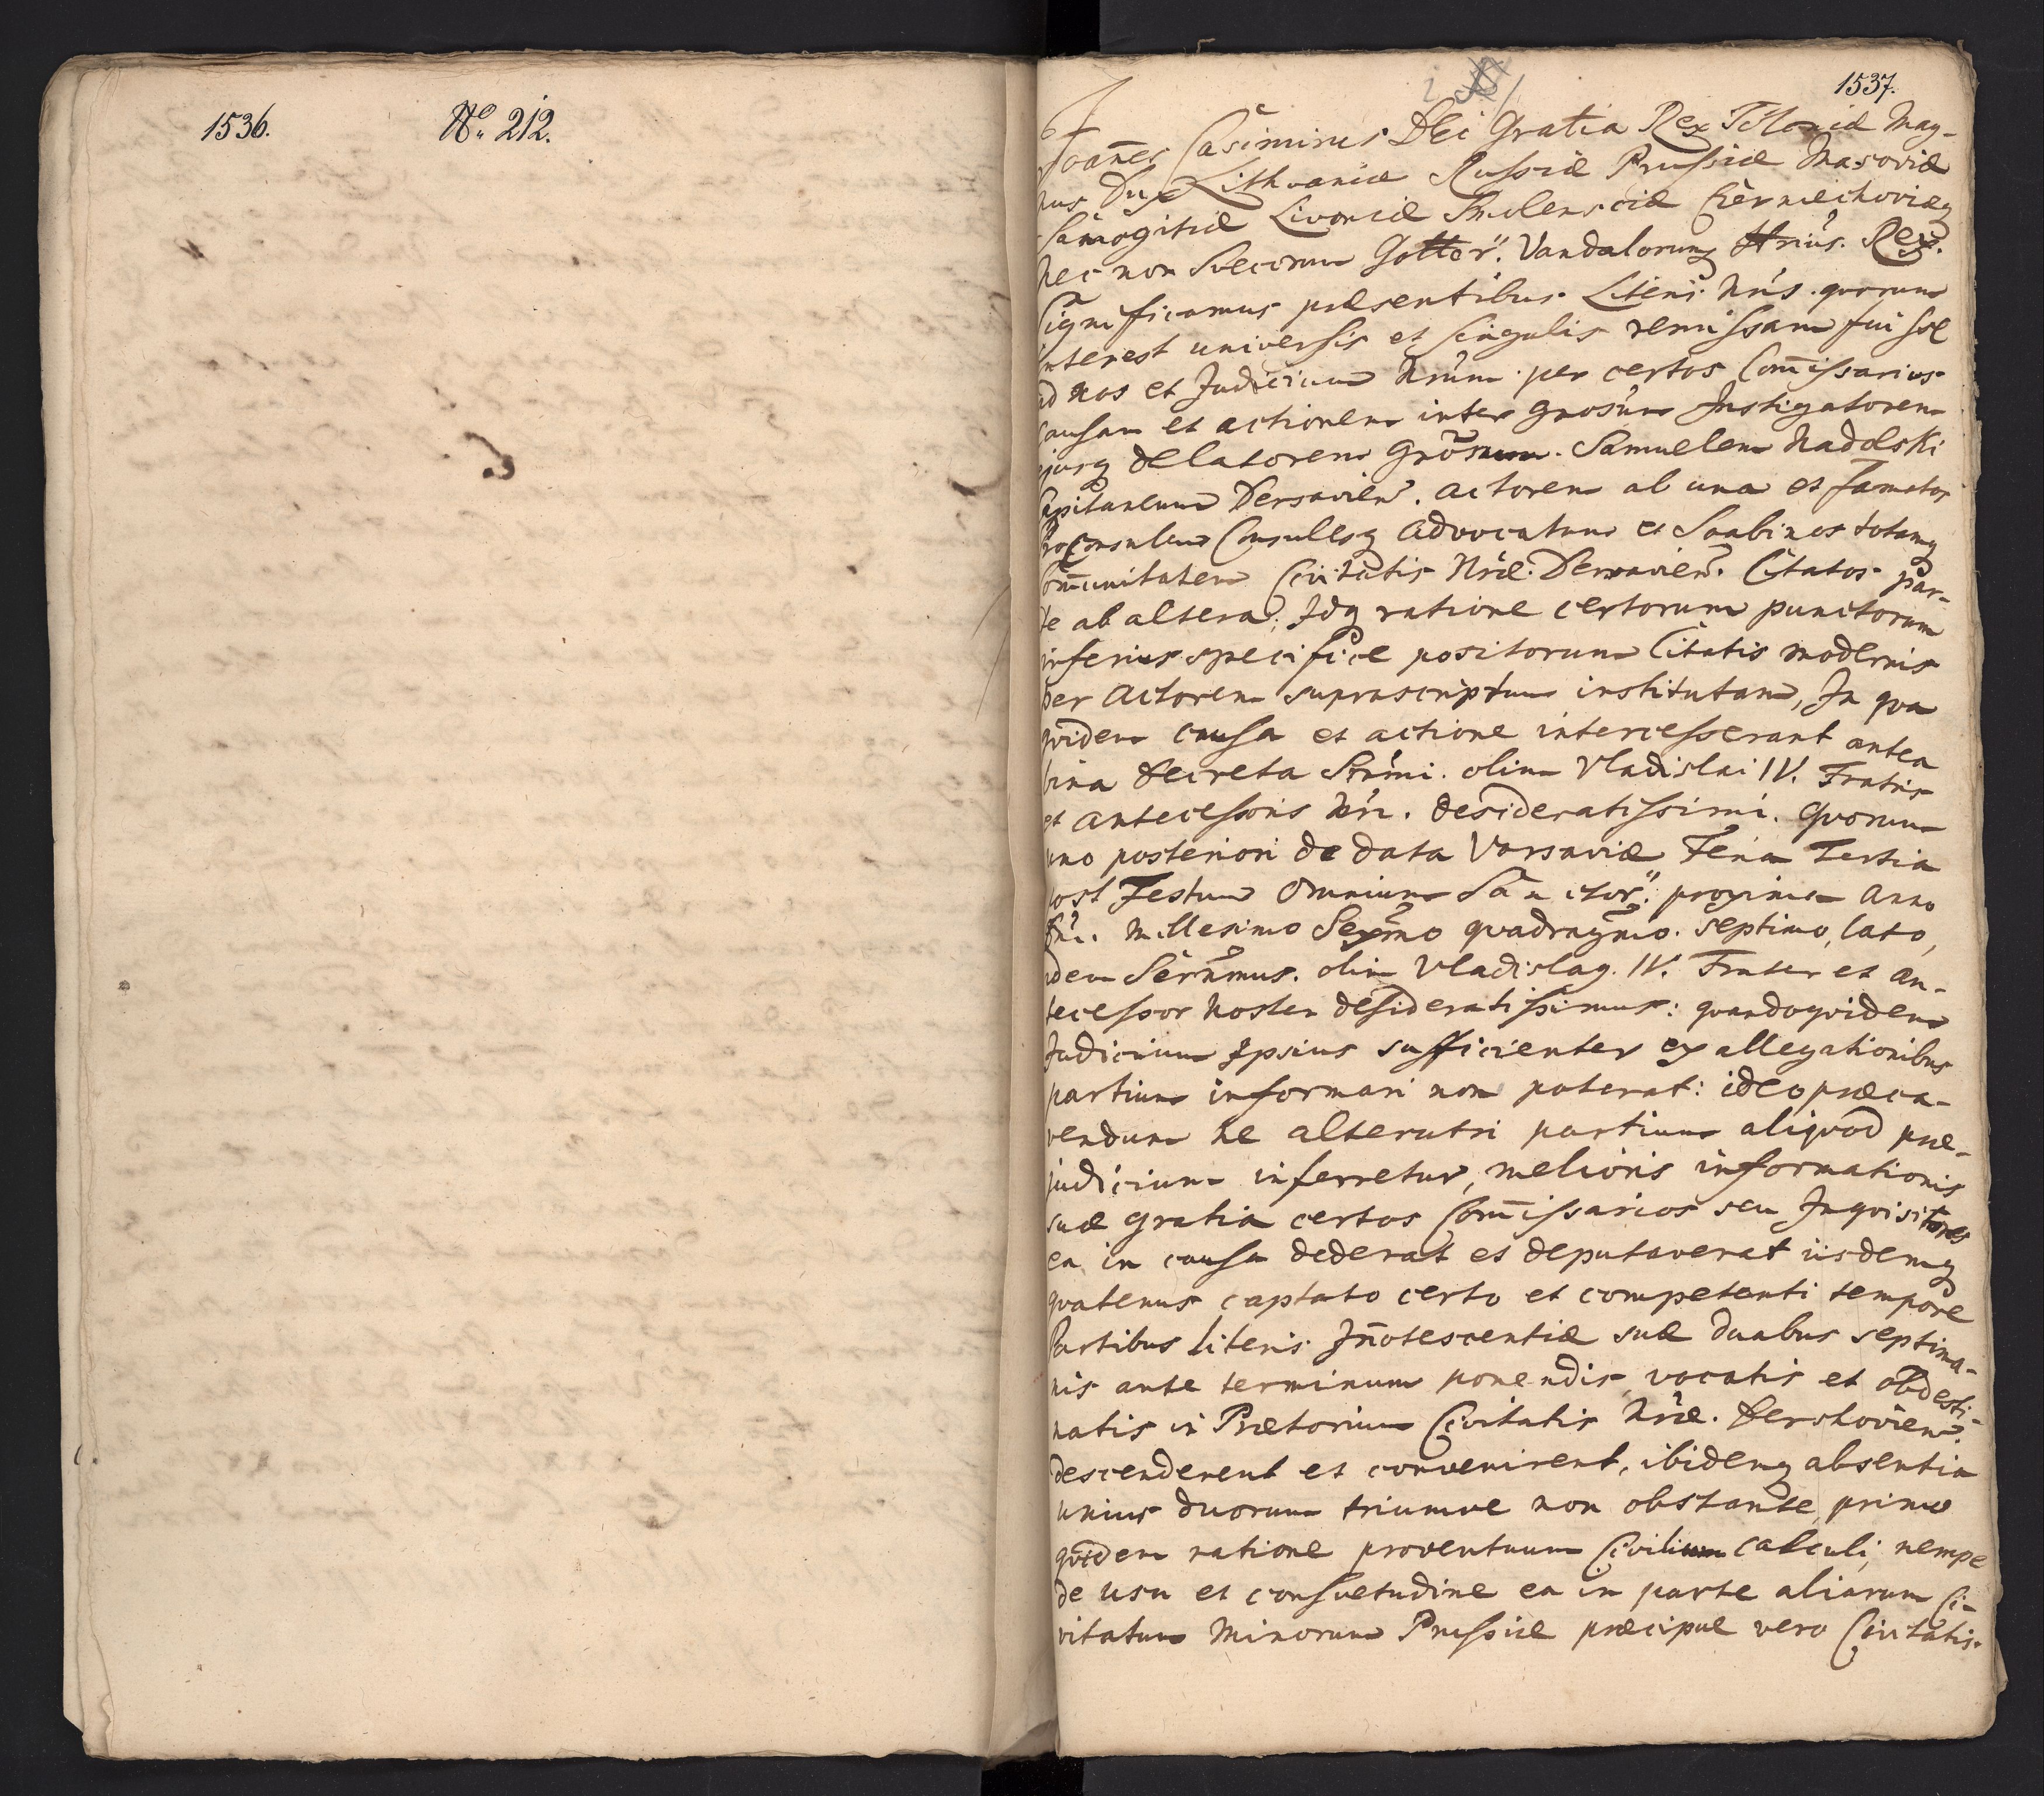 1536. No. 212.
1537.
Joanes Casimirus Dei Gratia Rex Poloniæ Mag-
nus Dux Lithuaniæ Russiæ Prussiæ Masoviæ
Samogitiæ Livoniæ Smolensciæ Czerniechoviæq
nec non Svecorum Gottor. Vandalorumq Hrius. Rex.
Significamus præsentibus Literis Nris. quorum
interest universis et singulis remissam fuisse
ad Nos et Judicium Nrum per certos Comissarios
causam et actionem inter Gnosum Instigatorem
ejusq delatorem Gnosum. Samuelem Nadolski
Capitaneum Dersavien. actorem ab una et Famatos
Proconsulem Consulesq Advocatum et Scabinos totamq
Comunitatem Civitatis Nræ. Dersavien. Citatos par-
te ab altera; Idq ratione certorum punctorum
inferius specifice positorum Citatis modernis
per Actorem suprascriptum institutam, In qua
quidem causa et actione intercesserant antea
bina decreta Srmi. olim Vladislai IV. Fratris
et antecessoris Nri. desideratissimi. quorum
uno posteriori de data Varsaviæ Feria Tertia
post Festum Omnium Sanctor. proxima Anno
Dni. Millesimo Sexmo quadragmo. septimo, lato,
idem Sernmus. olim Vladislaq. IV. Frater et an-
tecessor Noster desideratissimus: quandoquidem
Judicium Ipsius sufficienter ex allegationibus
partium informari non poterat: ideo præca-
vendum ne alterutri partium aliquod præ-
judicium inferretur, melioris informationis
suæ gratia certos Comissarios seu Inquisitores
ea in causa dederat et deputaverat iisdemq
quatenus captato certo et competenti tempore
Partibus literis Inotescentiæ suæ duabus septima-
nis ante terminum ponendis vocatis et obdesti-
natis in Prætorium Civitatis Nræ. Dershovien.
descenderent et convenirent, ibidemq absentia
unius duorum triumve non obstante, primo
quidem ratione proventuum Civilium calculi, nempe
de usu et consuetudine ea in parte aliarum Ci-
vitatum Minorum Prussiæ præcipue vero Civitatis